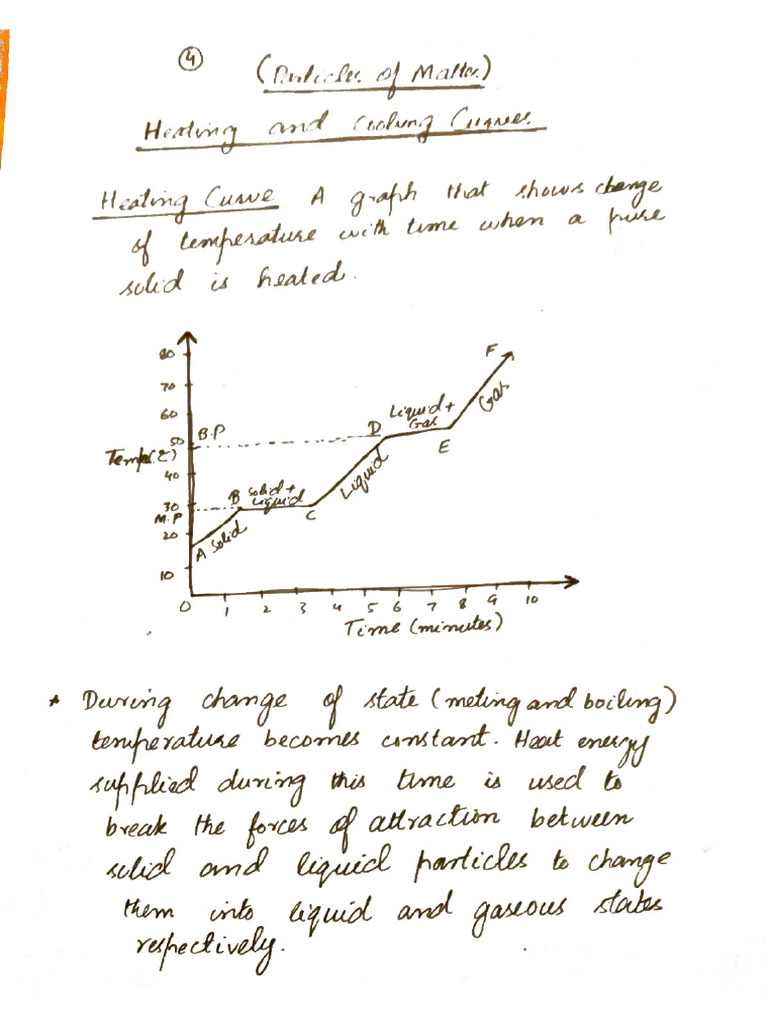 4
(Particles of Matter)
Heating and Cooling Curves
Heating Curve A graph that shows change
of temperature with time when a pure
solid is heated.
80
70
60
50
40
30
20
10
0
B.P
M.P
Temp(℃)
A Solid
B Solid +
Liquid
C
Liquid
D Liquid +
Gas
E
Gas
F
1 2 3 4 5 6 7 8 9 10
Time (minutes)
* During change of state (meting and boiling)
temperature becomes constant. Heat energy
supplied during this time is used to
break the forces of attraction between
solid and liquid particles to change
them into liquid and gaseous states
respectively.